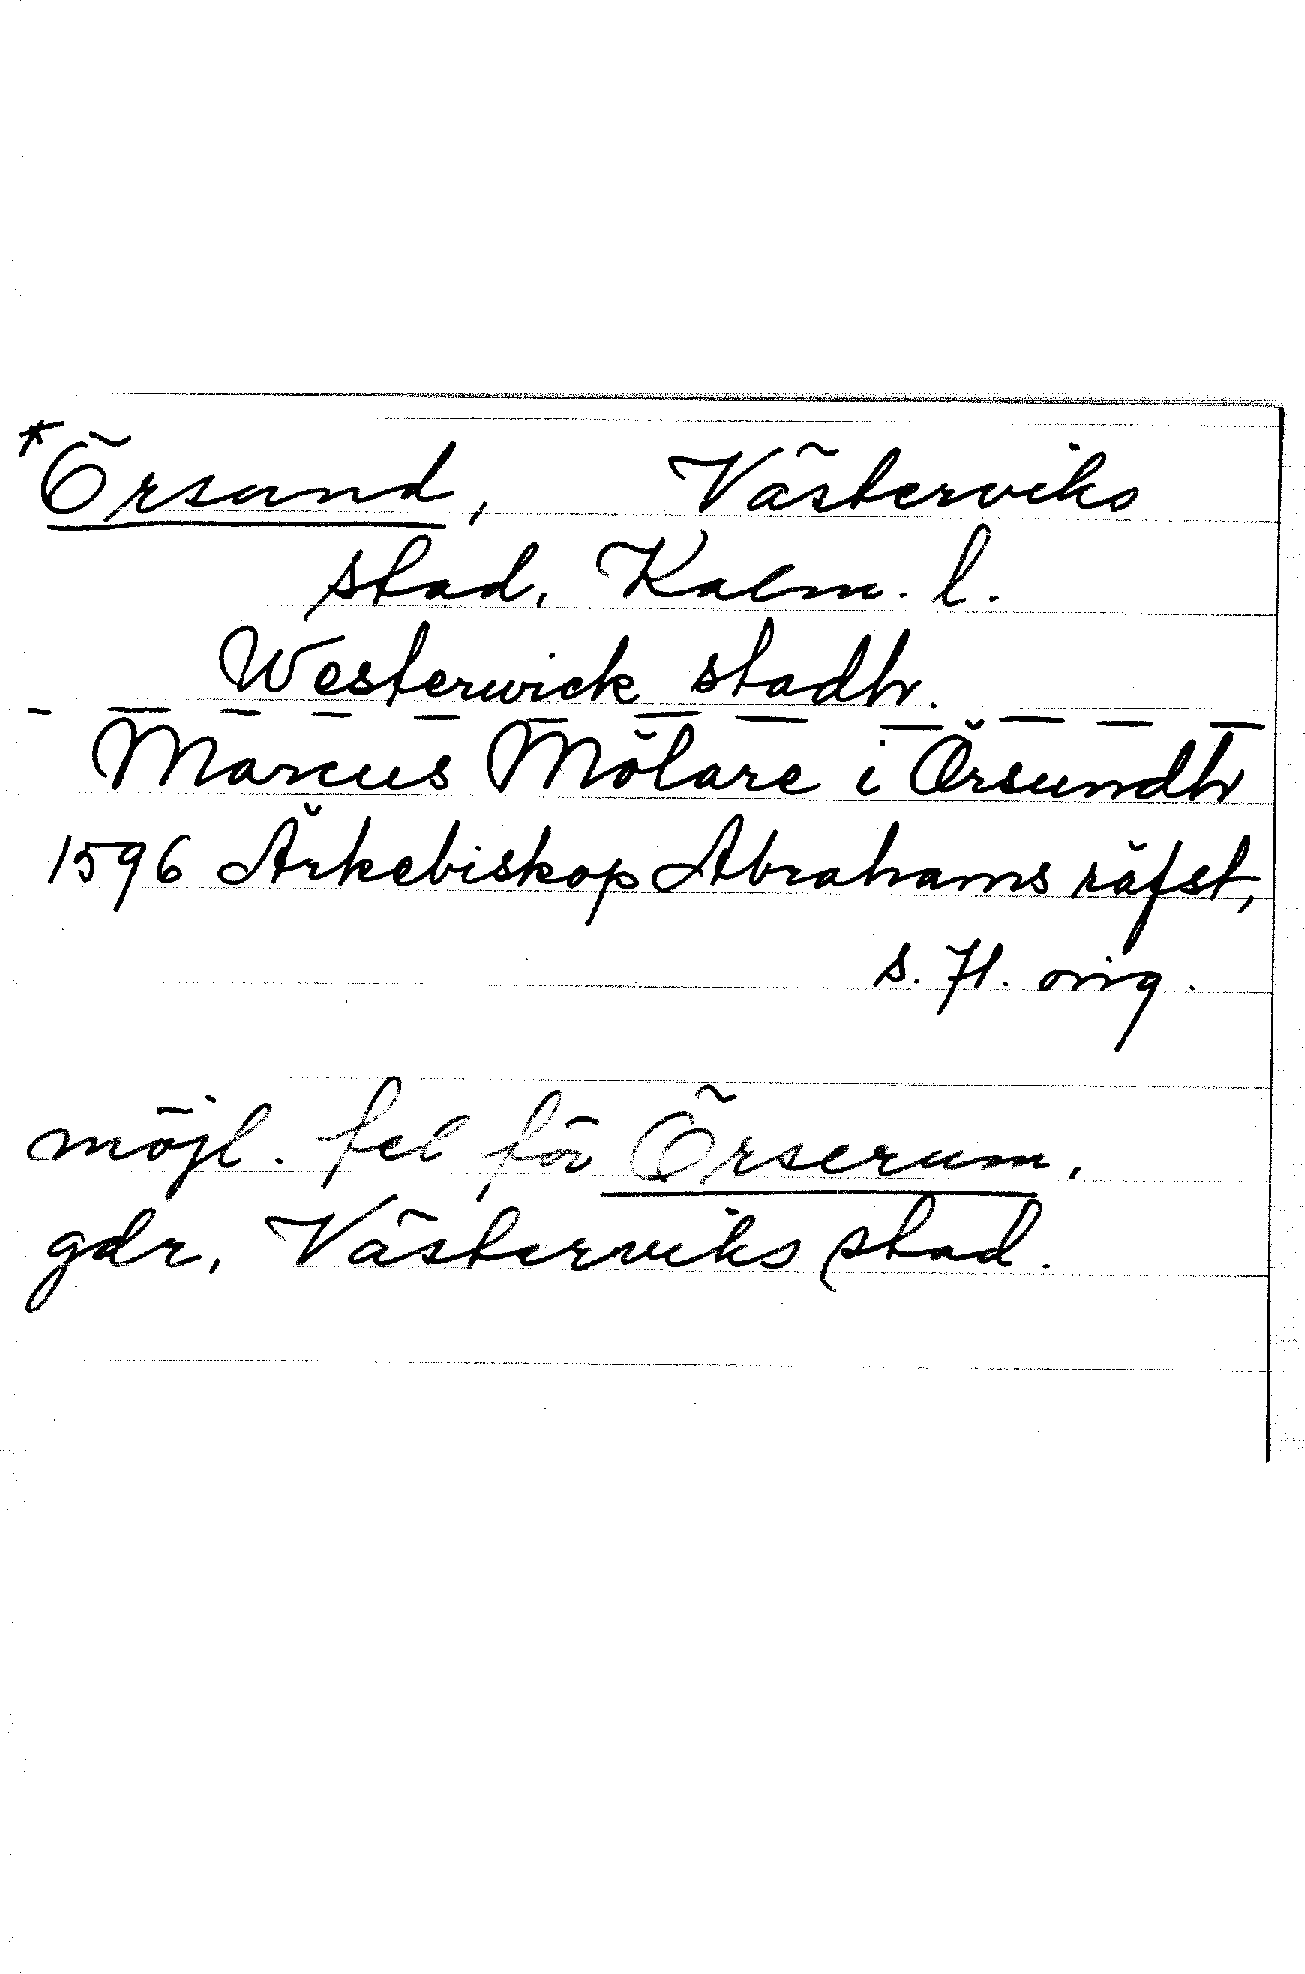 *Örsund, Västerviks
stad, Kalm. l.
Westerwick stadh.
- - - - - - - - - - - -
Marcus Mölare i Örsundh
1596 Ärkebiskop Abrahams räfst,
s. 71. orig.
möjl. fel för Örserum,
gdr, Västerviks stad.